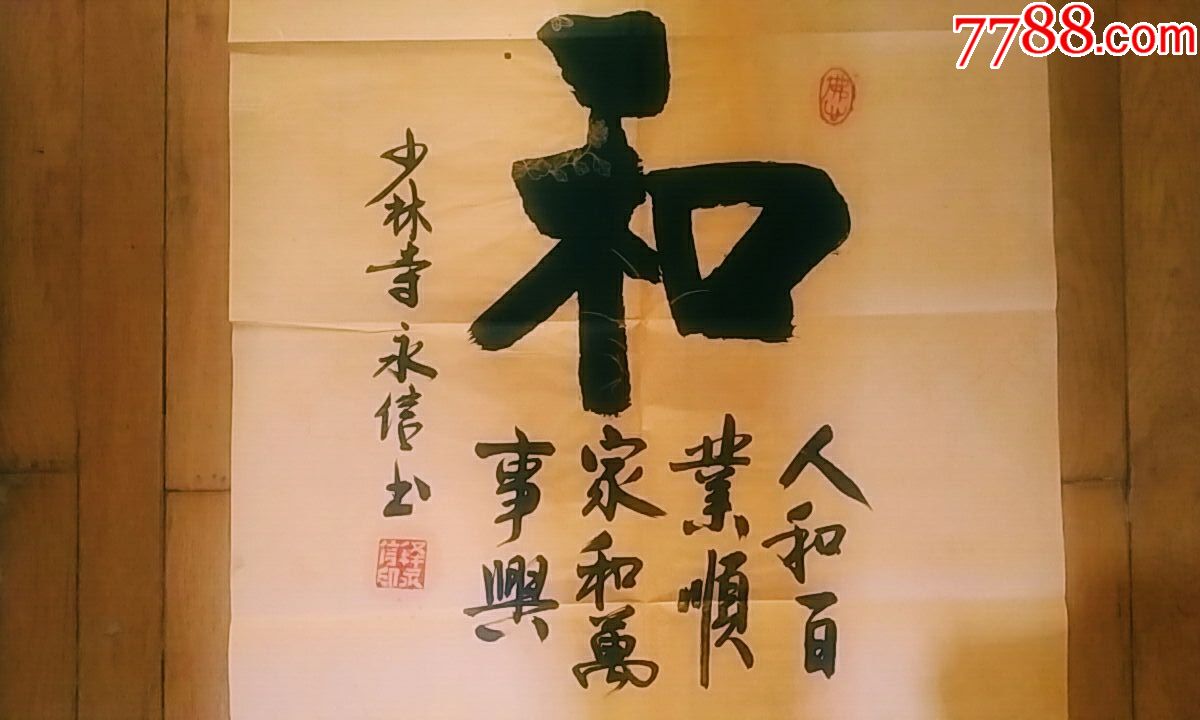 7788.com
和
人和百
業順
家和萬
事興
少林寺永信书